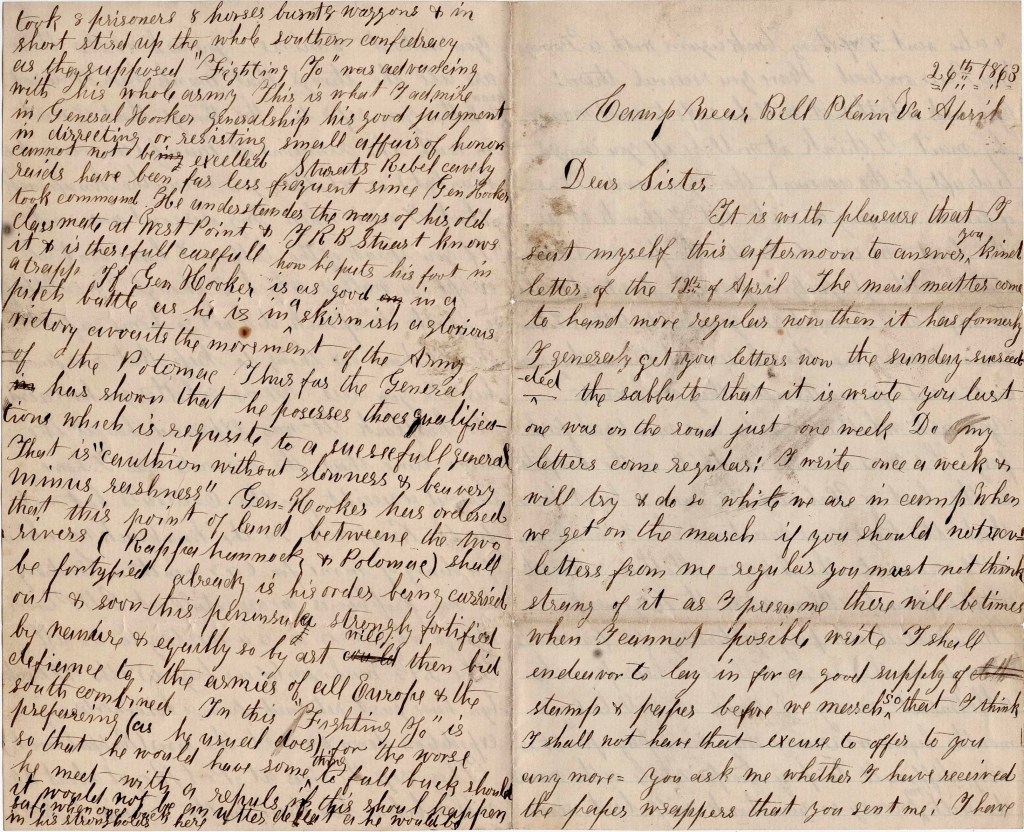 took 8 prisoners 8 horses burnt 2 waggons & in
short stird up the whole southern confedracy
as they supposed "Fighting Jo" was advancing
with his whole army This is what I admire
in General Hooker generalship his good judgment
in dirrecting or resisting small affairs of honor
cannot not being excelled Stuarts Ribel cavely
raids have been far less frequent since Gen Hooker
took command. He understandes the ways of his old
Classmate at West Point & J R B Stuart knows
it & is therefull carefull how he puts his foot in
a trapp If Gen Hooker is as good in a
pitch battle as he is in a skirmish a glorious
victory avouits the movment of the Army
of the Potomac Thus far the General
has shown that he posesses thoes qualifica-
tions which is requisite to a sucsefull general
That is "cauthion without slowness & bravery
minus rashness" Gen-Hooker has ordered
that this point of land betweene the two
rivers (Rappahannock & Potomac) shall
be fortyfied already is his order being carried
out & soon this peninsula strongly fortified
by nature & equilly so by art will then bid
defiance to the armies of all Europe & the
south combined In this "Fighting Jo" is
prepareing (as he usual does) for the worse
so that he would have some thing to fall back should
he meet with a repuls, if this shoul happen
it would not be an utter defeat as he would be
safe when once back
in his strongholds here
24th 1863
Camp Near Bell Plain Va April
Dear Sister
It is with pleasure that I
seat myself this afternoon to answer you kind
letter of the 12th of April The mail matter come
to hand more regular now then it has formerly
I generaly get you letters now the sunday suceed-
-ded the sabbath that it is wrote you last
one was on the road just one week Do my
letters come regular? I write once a week &
will try & do so while we are in camp When
we get on the march if you should not recive
letters from me regular you must not think
strang of it as I presume there will be times
when I cannot posible write I shall
endeavor to lay in for a good supply of
stamp & paper before we march so that I think
I shall not have that excuse to offer to you
any more = you ask me whether I have received
the paper wrappers that you sent me? I have